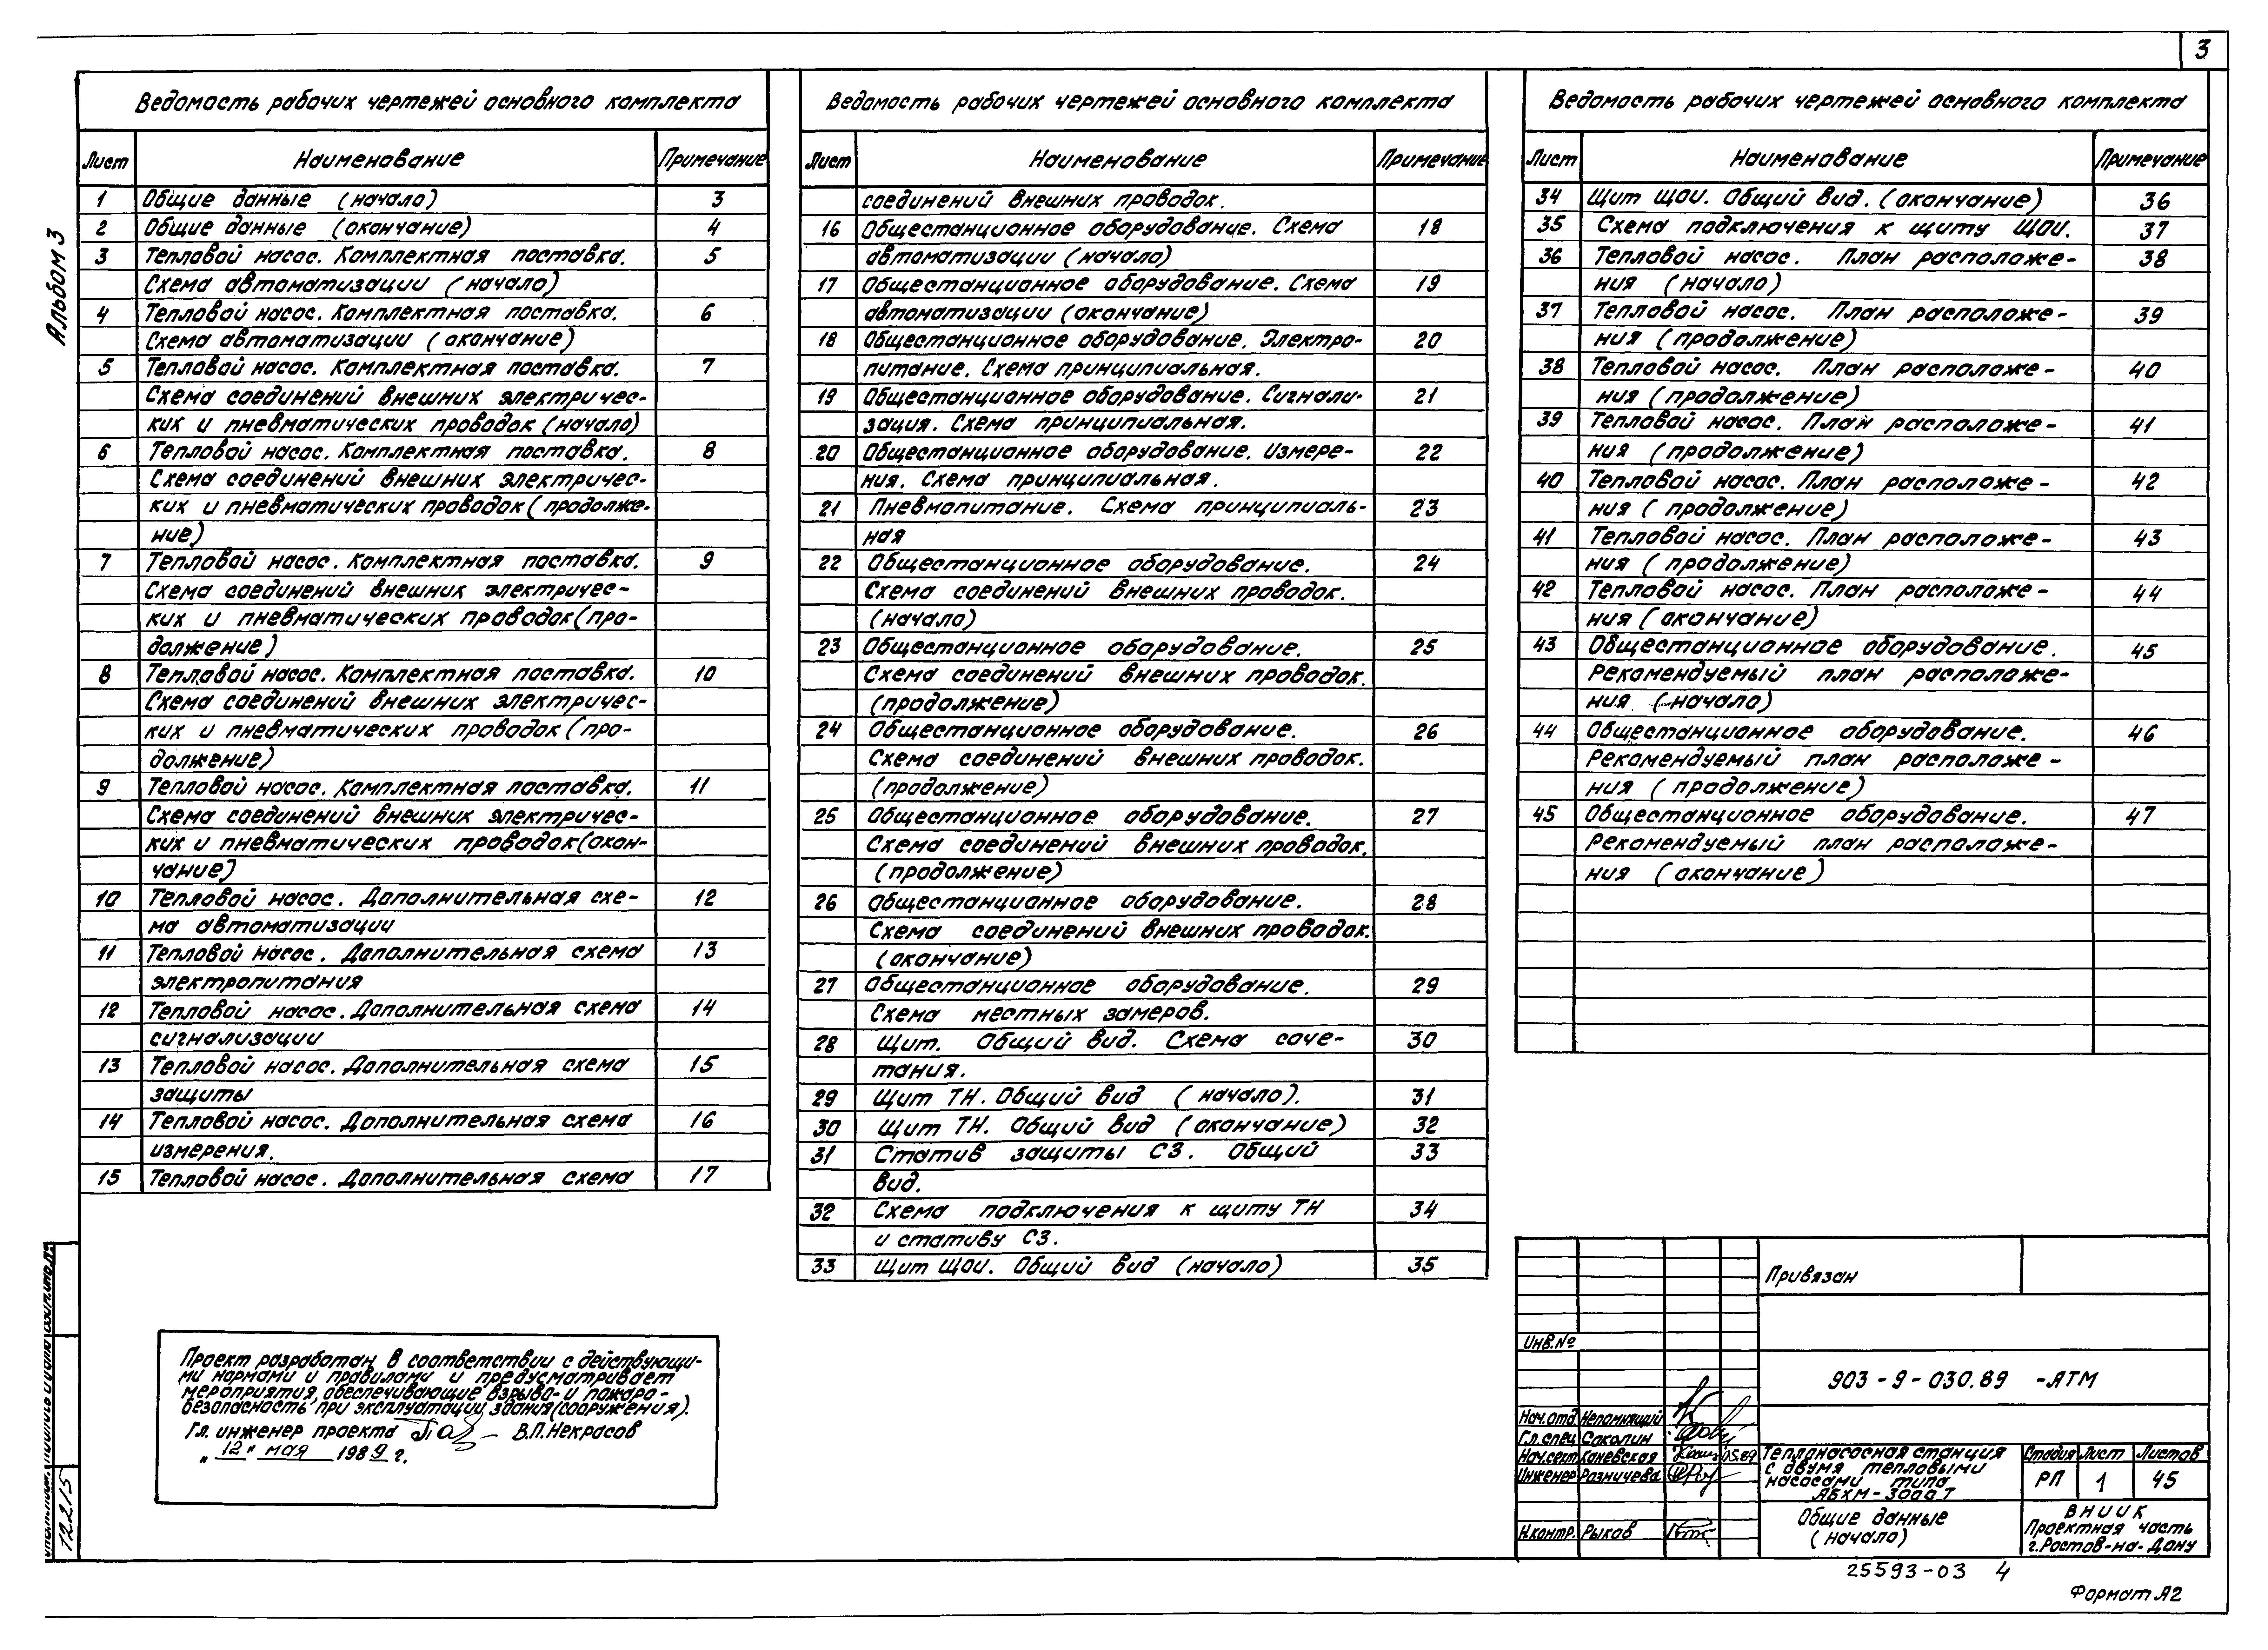 3
Альбом 3
Ведомость рабочих чертежей основного комплекта
Лист Наименование Примечание
1 Общие данные (начало) 3
2 Общие данные (окончание) 4
3 Тепловой насос. Комплектная поставка. 5
Схема автоматизации (начало)
4 Тепловой насос. Комплектная поставка. 6
Схема автоматизации (окончание)
5 Тепловой насос. Комплектная поставка. 7
Схема соединений внешних электричес-
ких и пневматических проводок (начало)
6 Тепловой насос. Комплектная поставка. 8
Схема соединений внешних электричес-
ких и пневматических проводок (продолже-
ние)
7 Тепловой насос. Комплектная поставка. 9
Схема соединений внешних электричес-
ких и пневматических проводок (про-
должение)
8 Тепловой насос. Комплектная поставка. 10
Схема соединений внешних электричес-
ких и пневматических проводок (про-
должение)
9 Тепловой насос. Комплектная поставка. 11
Схема соединений внешних электричес-
ких и пневматических проводок (окон-
чание)
10 Тепловой насос. Дополнительная схе- 12
ма автоматизации
11 Тепловой насос. Дополнительная схема 13
электропитания
12 Тепловой насос. Дополнительная схема 14
сигнализации
13 Тепловой насос. Дополнительная схема 15
защиты
14 Тепловой насос. Дополнительная схема 16
измерения.
15 Тепловой насос. Дополнительная схема 17
Ведомость рабочих чертежей основного комплекта
Лист Наименование Примечание
соединений внешних проводок.
16 Общестанционное оборудование. Схема 18
автоматизации (начало)
17 Общестанционное оборудование. Схема 19
автоматизации (окончание)
18 Общестанционное оборудование. Электро- 20
питание. Схема принципиальная.
19 Общестанционное оборудование. Сигнали- 21
зация. Схема принципиальная.
20 Общестанционное оборудование. Измере- 22
ния. Схема принципиальная.
21 Пневмопитание. Схема принципиаль- 23
ная
22 Общестанционное оборудование. 24
Схема соединений внешних проводок.
(начало)
23 Общестанционное оборудование. 25
Схема соединений внешних проводок.
(продолжение)
24 Общестанционное оборудование. 26
Схема соединений внешних проводок.
(продолжение)
25 Общестанционное оборудование. 27
Схема соединений внешних проводок.
(продолжение)
26 Общестанционное оборудование. 28
Схема соединений внешних проводок.
(окончание)
27 Общестанционное оборудование. 29
Схема местных замеров.
28 Щит. Общий вид. Схема соче- 30
тания.
29 Щит ТН. Общий вид (начало). 31
30 Щит ТН. Общий вид (окончание) 32
31 Статив защиты СЗ. Общий 33
вид.
32 Схема подключения к щиту ТН 34
и стативу СЗ.
33 Щит ЩОИ. Общий вид (начало) 35
Ведомость рабочих чертежей основного комплекта
Лист Наименование Примечание
34 Щит ЩОИ. Общий вид. (окончание) 36
35 Схема подключения к щиту ЩОИ. 37
36 Тепловой насос. План расположе- 38
ния (начало)
37 Тепловой насос. План расположе- 39
ния (продолжение)
38 Тепловой насос. План расположе- 40
ния (продолжение)
39 Тепловой насос. План расположе- 41
ния (продолжение)
40 Тепловой насос. План расположе- 42
ния (продолжение)
41 Тепловой насос. План расположе- 43
ния (продолжение)
42 Тепловой насос. План расположе- 44
ния (окончание)
43 Общестанционное оборудование. 45
Рекомендуемый план расположе-
ния (начало)
44 Общестанционное оборудование. 46
Рекомендуемый план расположе-
ния (продолжение)
45 Общестанционное оборудование. 47
Рекомендуемый план расположе-
ния (окончание)
Проект разработан в соответствии с действующи-
ми нормами и правилами и предусматривает
мероприятия, обеспечивающие взрыво- и пожаро-
безопасность при эксплуатации здания (сооружения).
Гл. инженер проекта В.П.Некрасов
„12" мая 1989 г.
12215
Привязан
Инв.№
903-9-030.89 -АТМ
Нач.отд Непомнящий
Гл.спец Соколин
Нач.сект Каневская 05.89
Инженер Разничева
Н.контр. Рыков
Теплонасосная станция
с двумя тепловыми
насосами типа
АБХМ-3000Т
Стадия Лист Листов
РП 1 45
Общие данные
(начало)
ВНИИК
Проектная часть
г.Ростов-на-Дону
25593-03 4
Формат А2